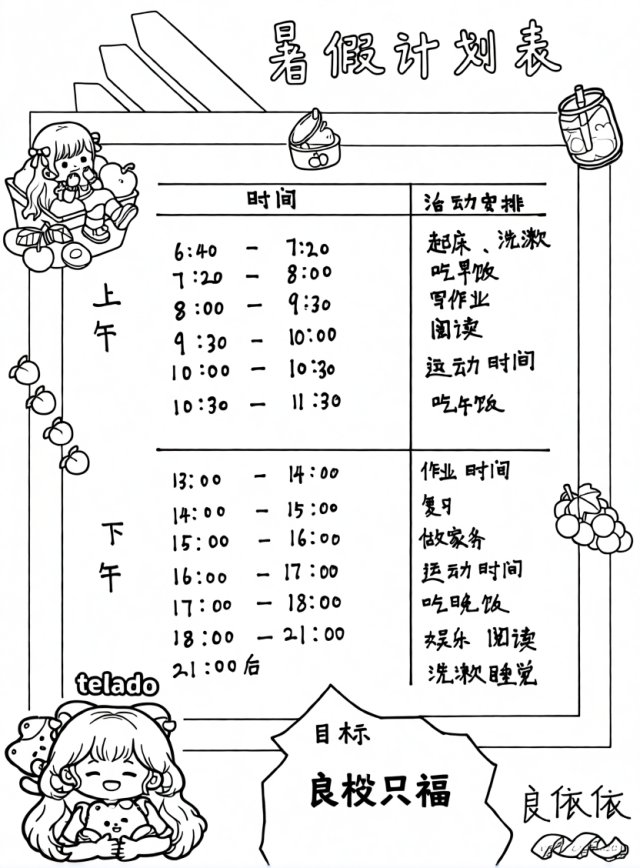 暑假计划表
时间 活动安排
上午
6:40 - 7:20 起床、洗漱
7:20 - 8:00 吃早饭
8:00 - 9:30 写作业
9:30 - 10:00 阅读
10:00 - 10:30 运动时间
10:30 - 11:30 吃午饭
下午
13:00 - 14:00 作业时间
14:00 - 15:00 复习
15:00 - 16:00 做家务
16:00 - 17:00 运动时间
17:00 - 18:00 吃晚饭
18:00 - 21:00 娱乐 阅读
21:00后 洗漱睡觉
telado
目标
良桉只福
良依依